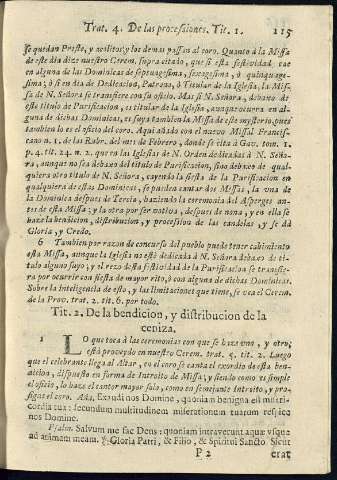 Trat. 4. De las procesiones. Tit. 1. 115
se quedan Preste, y acolitos; y los demas passan al coro. Quanto à la Missa
de este dia dize nuestro Cerem. supra citado, que si esta festividad cae
en alguna de las Dominicas de septuagesima, sexagesima, ò quinquage-
sima; ò si en dia de Dedicacion, Patrono, ò Titular de la Iglesia, la Mis-
sa de N. Señora se transfiere con su oficio. Mas si N. Señora, debaxo de
este titulo de Purificacion, es titular de la Iglesia, aunque ocurra en al-
guna de dichas Dominicas, es suya tambien la Missa de este mysterio, pues
tambien lo es el oficio del coro. Aqui añado con el nuevo Missal Francis-
cano n. 1. de las Rubr. del mes de Febrero, donde se cita à Gav. tom. 1.
p. 4. tit. 14. n. 2. que en las Iglesias de N. Orden dedicadas à N. Seño-
ra, aunque no sea debaxo del titulo de Purificacion, sino debaxo de qual-
quiera otro titulo de N. Señora, cayendo la fiesta de la Purificacion en
qualquiera de estas Dominicas, se pueden cantar dos Missas, la una de
la Dominica despues de Tercia, haziendo la ceremonia del Asperges an-
tes de esta Missa; y la otra por ser votiva, despues de nona, y en ella se
haze la bendicion, distribucion, y procession de las candelas, y se dà
Gloria, y Credo.
6 Tambien por razon de concurso del pueblo puede tener cabimiento
esta Missa, aunque la Iglesia no estè dedicada à N. Señora debaxo de ti-
tulo alguno suyo; y el rezo desta festividad de la Purificacion se transfie-
ra por ocurrir con fiesta de mayor rito, ò con alguna de dichas Dominicas.
Sobre la inteligencia de esto, y las limitaciones que tiene, se vea el Cerem.
de la Prov. trat. 2. tit. 6. por todo.
Tit. 2. De la bendicion, y distribucion de la
ceniza.
1 LO que toca à las ceremonias con que se haze uno, y otro,
està proveydo en nuestro Cerem. trat. 5. tit. 2. Luego
que el celebrante llega al Altar, en el coro se canta el exordio de esta ben-
dicion, dispuesto en forma de Introito de Missa; y siendo como es simple
el oficio, lo haze el cantor mayor solo, como en semejante Introito, y pro-
sigue el coro. Aña. Exaudi nos Domine, quoniam benigna est miseri-
cordia tua: secundum multitudinem miserationum tuarum respice
nos Domine.
Psalm. Salvum me fac Deus: quoniam intraverunt aquæ usque
ad animam meam. ℣. Gloria Patri, & Filio, & Spiritui Sancto. Sicut
P 2 erat